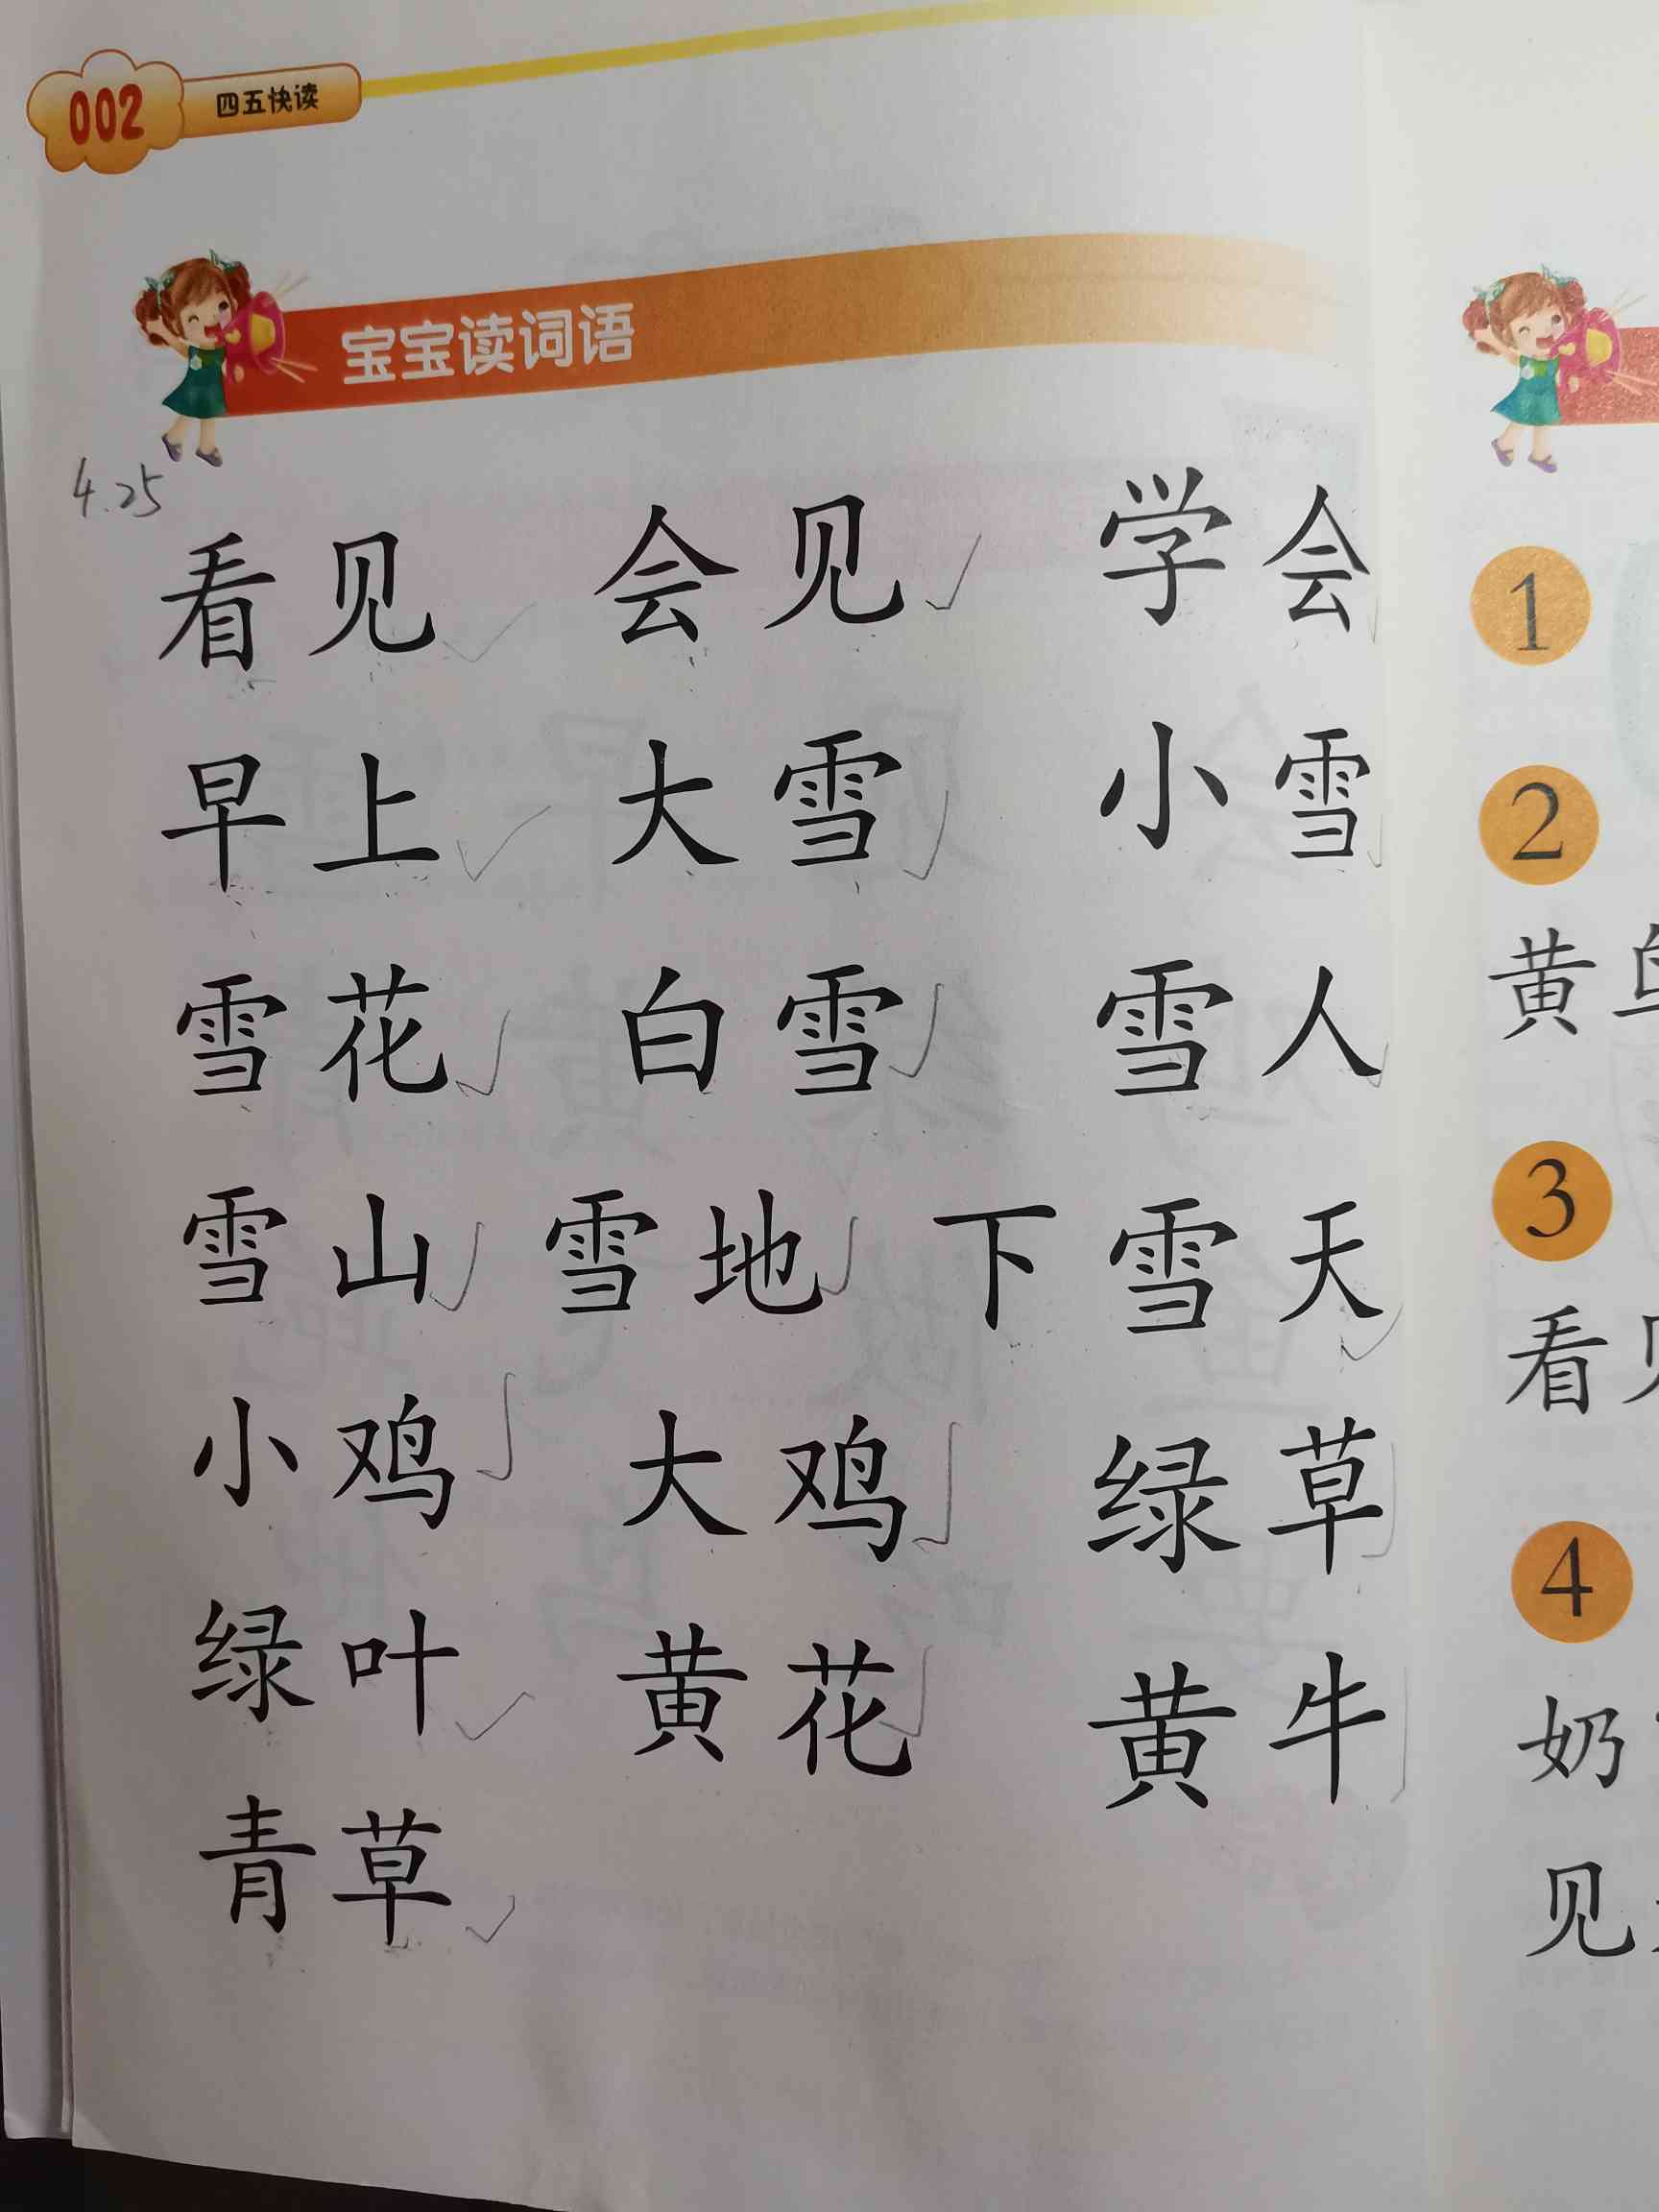 002 四五快读
宝宝读词语
4.25
看见 会见 学会
早上 大雪 小雪
雪花 白雪 雪人
雪山 雪地 下雪天
小鸡 大鸡 绿草
绿叶 黄花 黄牛
青草
1
2
黄
3
看
4
奶
见